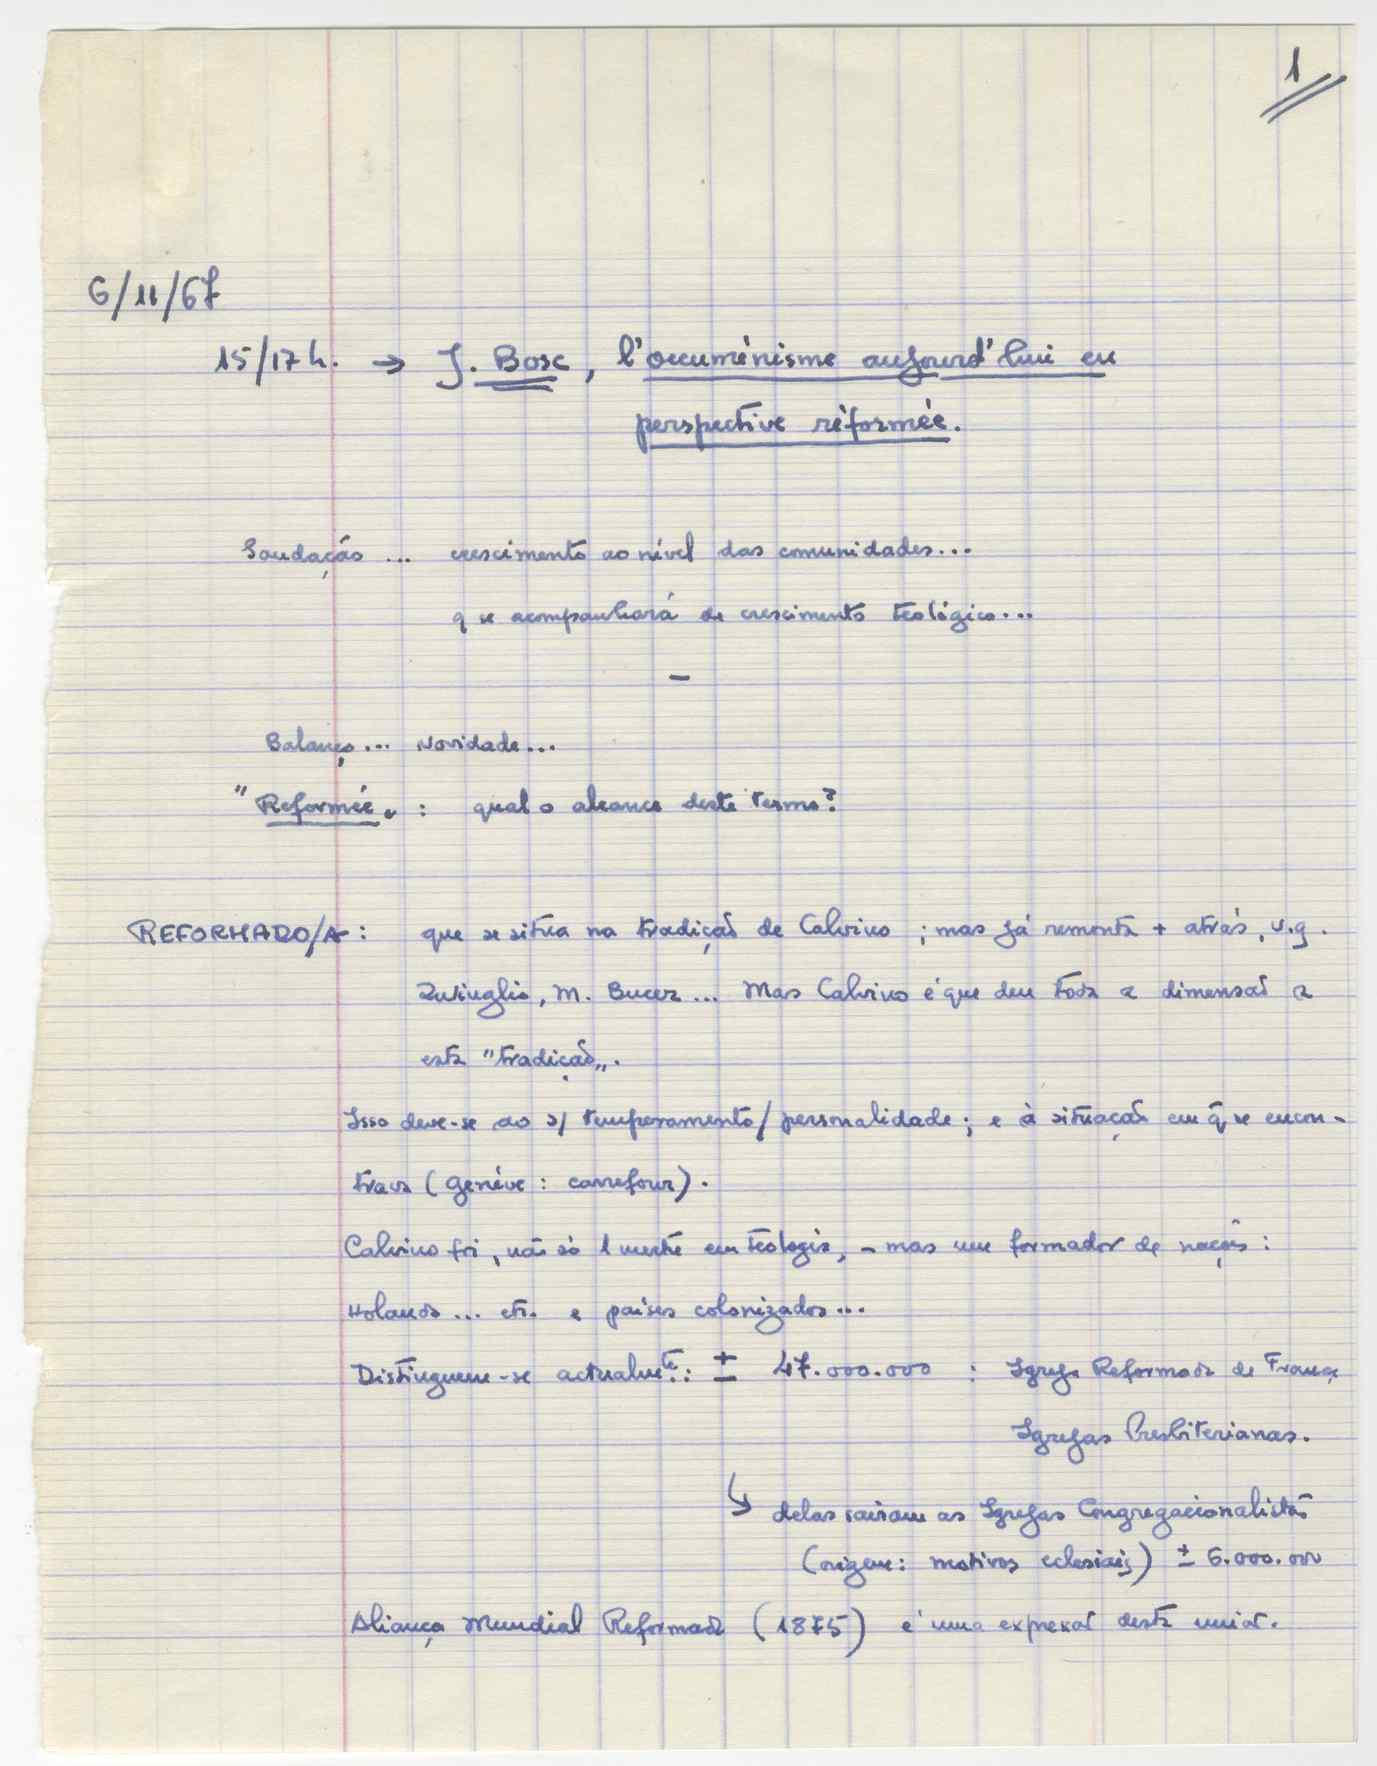 1
6/11/67
15/17 h. → J. Bosc, l'oecuménisme aujourd'hui en
perspective réformée.
Saudação ... crescimento ao nível das comunidades...
q se acompanhará de crescimento teológico...
–
Balanço... Novidade...
"Réformée" : qual o alcance deste termo?
REFORMADO/A : que se situa na tradição de Calvino ; mas já remonta + atrás, v.g.
Zwinglio, M. Bucer... Mas Calvino é que deu toda a dimensão a
esta "tradição".
Isso deve-se ao s/ temperamento/personalidade ; e à situação em q̃ se encon-
trava (Genève : carrefour).
Calvino foi, não só 1 mestre em teologia, – mas um formador de nações :
Holanda ... etc. e países colonizados...
Distinguem-se actualmte.: ± 47.000.000 : Igreja Reformada de França
Igrejas Presbiterianas.
↳ delas saíram as Igrejas Congregacionalistas
(origem : motivos eclesiais) ± 6.000.000
Aliança Mundial Reformada (1875) é uma expressão desta união.